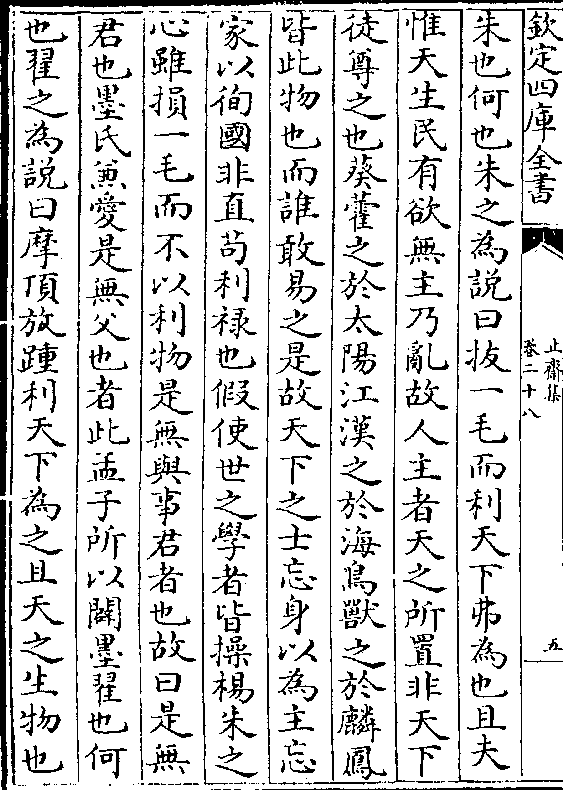 欽定四庫全書
止齋集
卷二十八
五
朱也何也朱之為說曰拔一毛而利天下弗為也且夫
惟天生民有欲無主乃亂故人主者天之所置非天下
徒尊之也葵藿之於太陽江漢之於海鳥獸之於麟鳳
皆此物也而誰敢易之是故天下之士忘身以為主忘
家以徇國非直苟利禄也假使世之學者皆操楊朱之
心雖損一毛而不以利物是無與事君者也故曰是無
君也墨氏兼愛是無父也者此孟子所以闢墨翟也何
也翟之為說曰摩頂放踵利天下為之且天之生物也